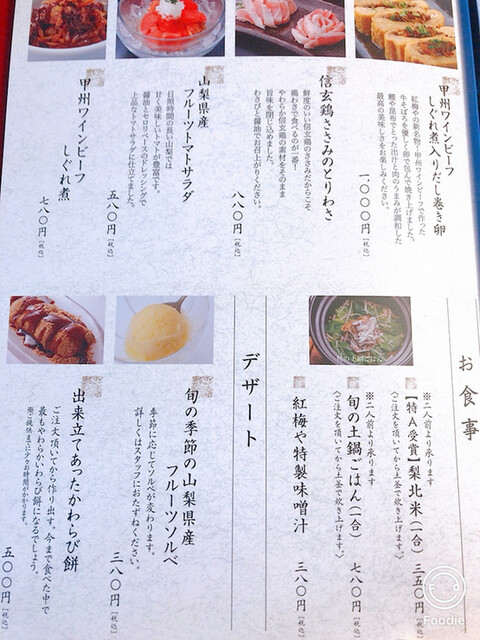 甲州ワインビーフ
しぐれ煮入りだし巻き卵
紅梅やの新名物!甲州ワインビーフで作った
牛そぼろを優しく卵で包んで焼き上げました。
鰹や昆布でとった出汁と肉のうまみが調和した
最高の美味しさをお楽しみください。
一、〇〇〇円［税込］
信玄鶏ささみのとりわさ
鮮度のいい信玄鶏のささみだからこそ
鶏わさで食べるのが一番!
やわらか信玄鶏の素材をそのまま
旨味を閉じ込めました。
わさびと醤油でお召上がりください。
八八〇円［税込］
山梨県産
フルーツトマトサラダ
日照時間の長い山梨では
甘く美味しいトマトが豊富です。
醤油とセロリベースのドレッシングで
上品なトマトサラダに仕立てました。
五八〇円［税込］
甲州ワインビーフ
しぐれ煮
七八〇円［税込］
お食事
【特A受賞】梨北米（一合）
※二人前より承ります
〈ご注文を頂いてから土釜で炊き上げます。〉
三五〇円［税込］
旬の土鍋ごはん（一合）
※二人前より承ります
〈ご注文を頂いてから土釜で炊き上げます。〉
七八〇円［税込］
紅梅や特製味噌汁
三八〇円［税込］
デザート
旬の季節の山梨県産
フルーツソルベ
季節に応じてソルベが変わります。
詳しくはスタッフにおたずねください。
三八〇円［税込］
出来立てあったかわらび餅
ご注文頂いてから作り出す。今まで食べた中で
最もやわらかいわらび餅になるでしょう。
※ご提供まで少々お時間がかかります。
五〇〇円［税込］
Foodie